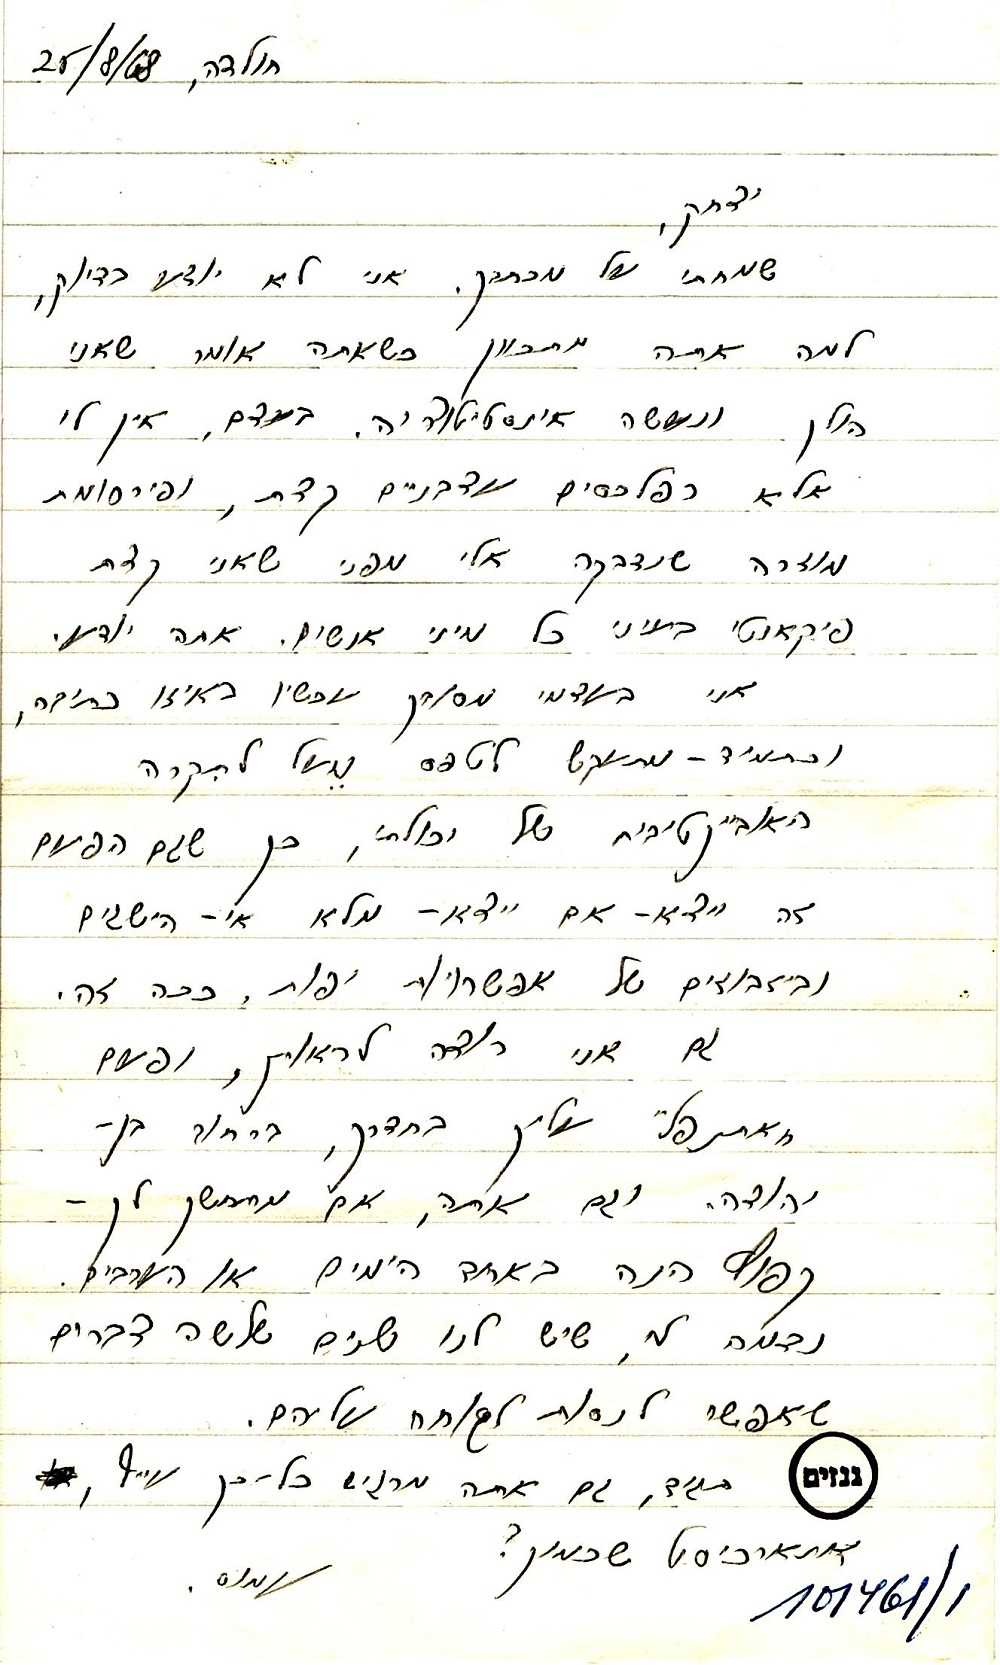 חולדה, 25/8/68
יצחק,
שמחתי על מכתבך. אני לא יודע בדיוק,
למה אתה מתכוון כשאתה אומר שאני
הולך ונעשה אינסטיטוציה. בעצם, אין לי
אלא רפלכסים עצבניים קצת, ופירסומת
מוזרה שנדבקה אלי מפני שאני קצת
פיקאנטי בעיני כל מיני אנשים. אתה יודע.
אני בעצמי מסובך עכשיו באיזו כתיבה,
וכתמיד - מתעקש לטפס מעל לתקרה
האובייקטיבית של יכולתי, כך שגם הפעם
זה ייצא - אם ייצא - מלא אי-הישגים
וביזבוזים של אפשרויות יפות. ככה זה.
גם אני רוצה לראותך, ופעם
אתנפל עליך בחדרך, ברחוב בן-
יהודה. וגם אתה, אם מתחשק לך -
קפוץ הנה באחד הימים או הערבים.
נדמה לי, שיש לנו שנים שלשה דברים
שאפשר לנסות לשוחח עליהם.
תגיד, גם אתה מרגיש כל-כך עייף,
שכמוך?
עמוס.
גנזים
101461/1